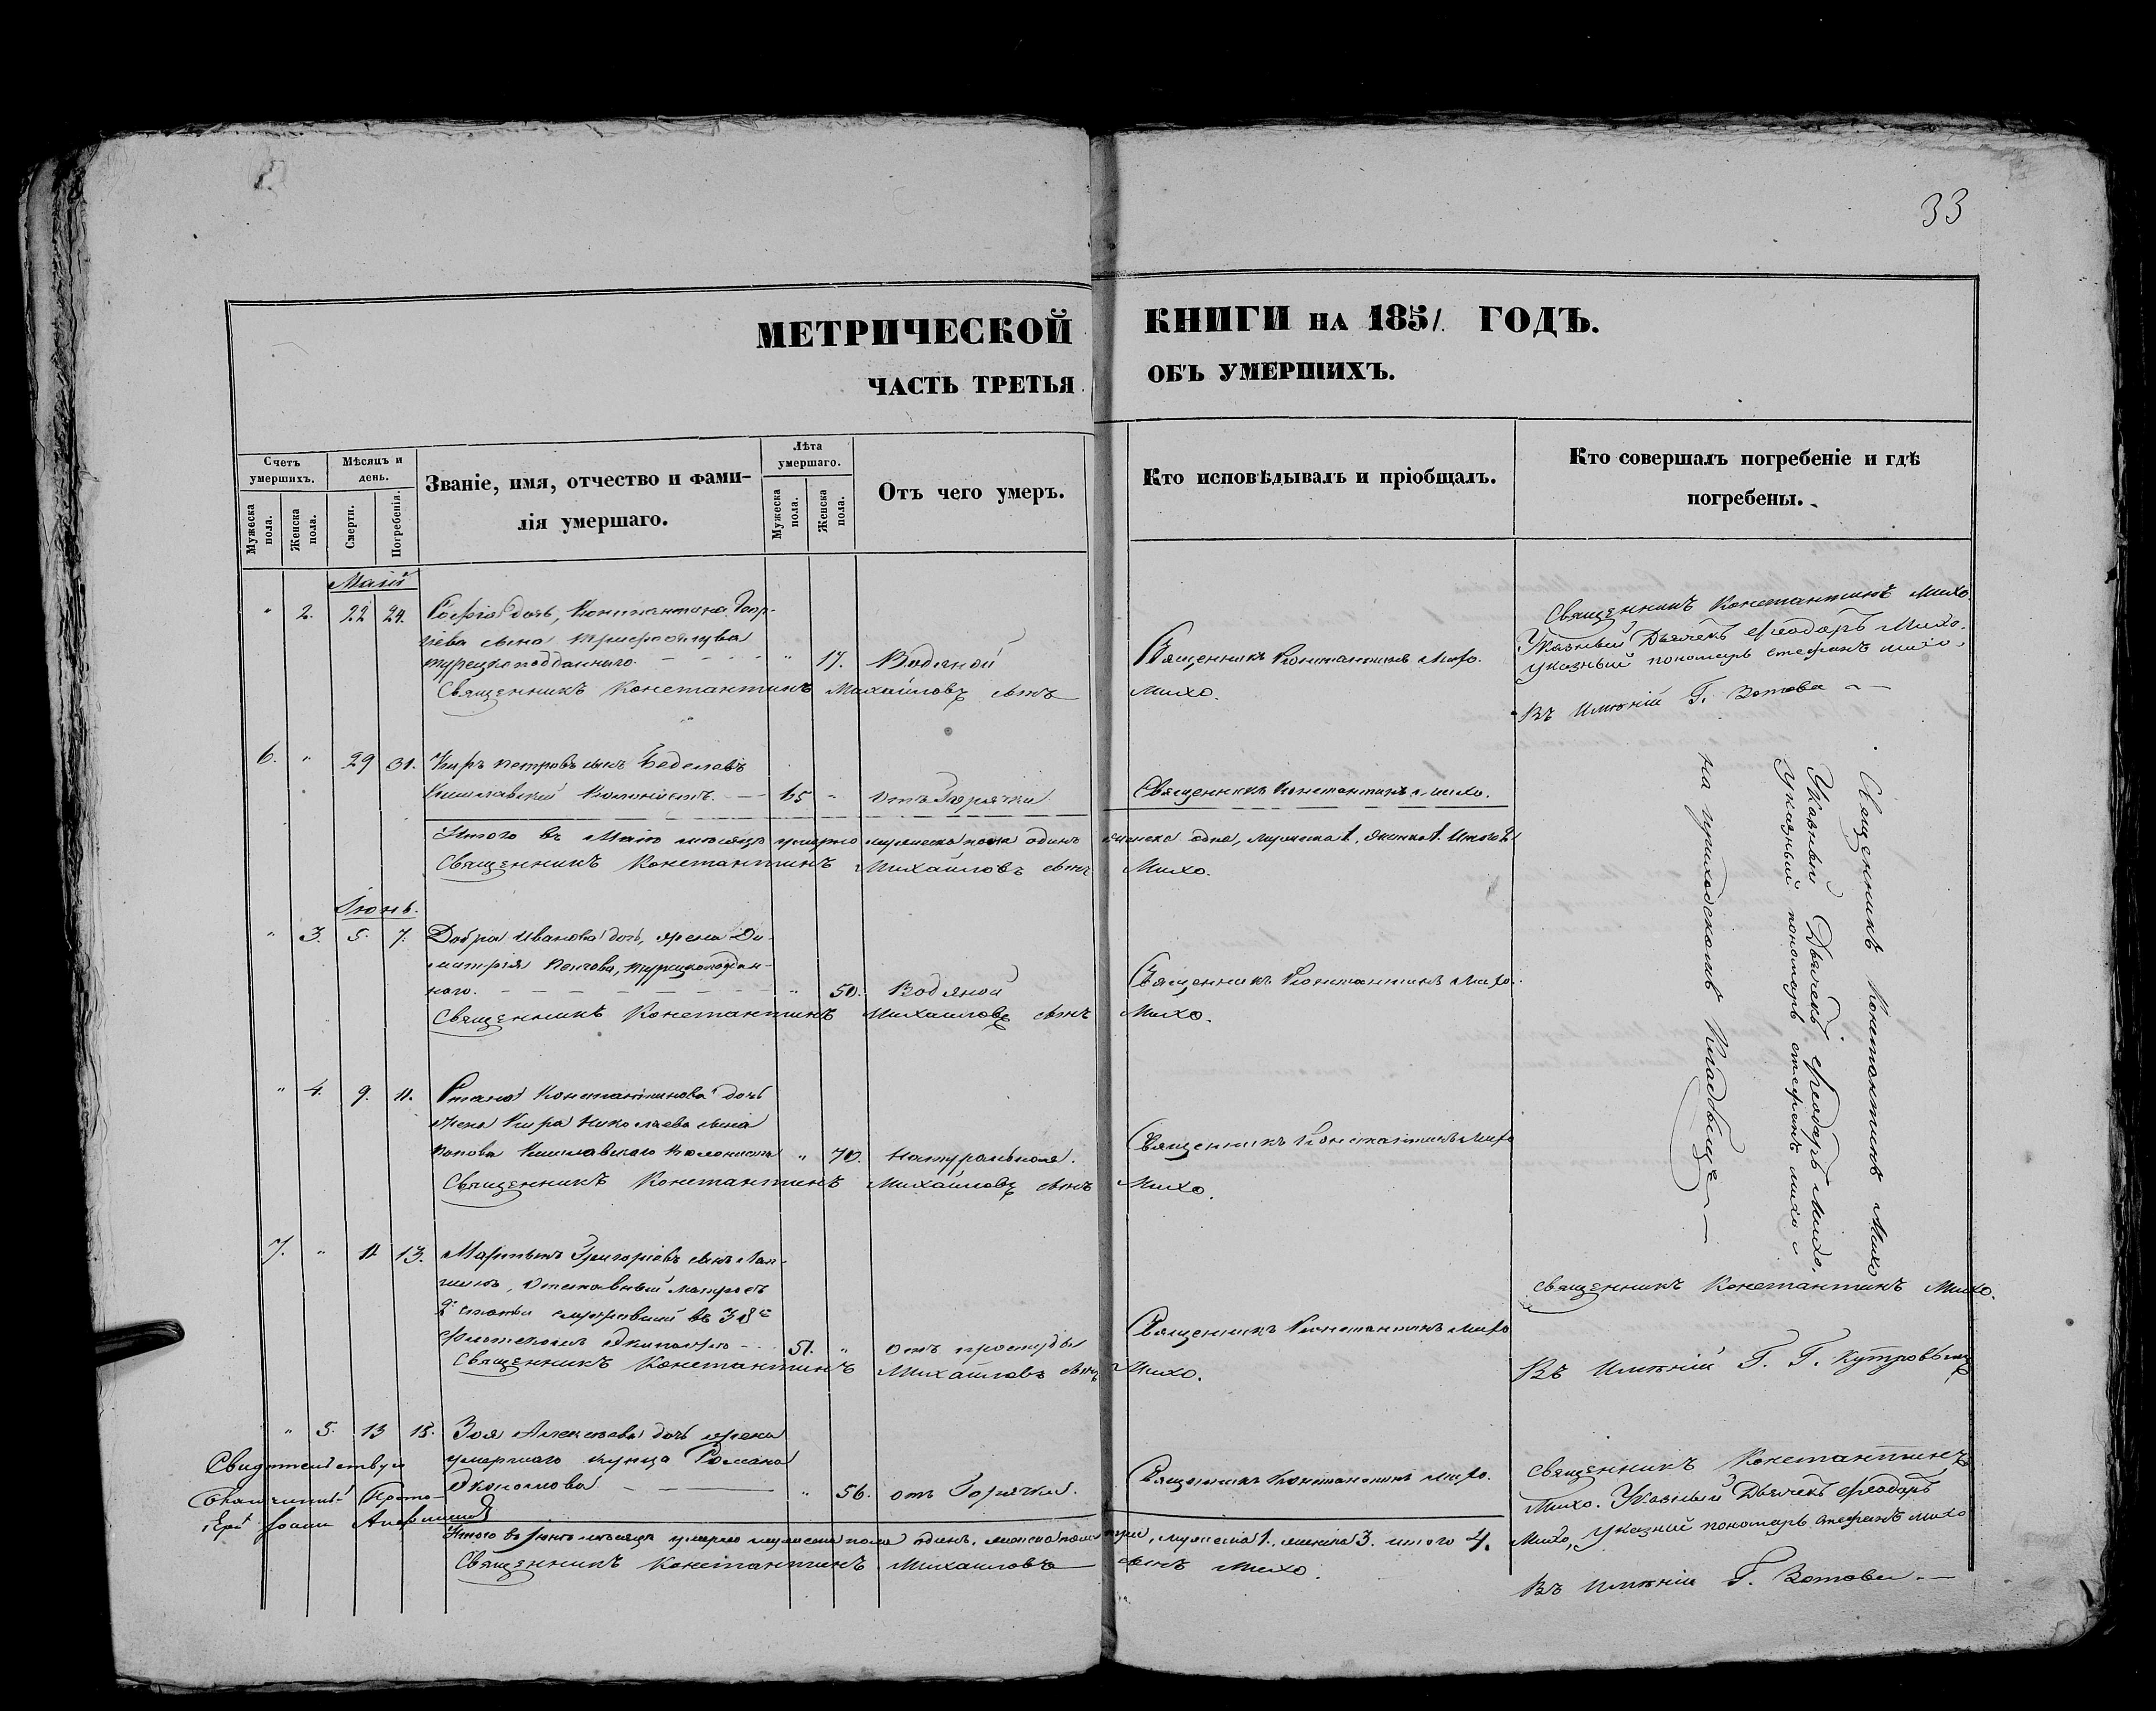 33
МЕТРИЧЕСКОЙ КНИГИ НА 1851. ГОДЪ.
ЧАСТЬ ТРЕТЬЯ ОБЪ УМЕРШИХЪ.
Счетъ умершихъ.
Мужеска пола.
Женска пола.
Мѣсяцъ и день.
Смерти.
Погребенія.
Званіе, имя, отчество и фамилія умершаго.
Лѣта умершаго.
Мужеска пола.
Женска пола.
Отъ чего умеръ.
Кто исповѣдывалъ и пріобщалъ.
Кто совершалъ погребеніе и гдѣ погребены.
Маій
" 2. 22 24. Софія дочь, Константина Геор-
гіева сына
турецкоподданнаго. " 17. Водяной
Священникъ Константинъ Михо.
Священникъ Константинъ Михайловъ сынъ Михо.
Священникъ Константинъ Михо.
Указный Дьячекъ Ѳеодоръ Михо.
Указный пономарь Стефанъ Михо.
Въ имѣніи Г. Зотова
6. " 29 31. Киръ Петровъ сынъ
Кишлавскій Колонистъ. 65 " отъ Горячки
Священникъ Константинъ Михо.
Итого въ Маіѣ мѣсяцѣ умерло мужеска пола одинъ женска одна, мужеска 1, женска 1. Итого 2
Священникъ Константинъ Михайловъ сынъ Михо.
Іюнь.
" 3. 5. 7. Добра Иванова дочь, жена Ди-
митрія турецкоподдан-
наго. " 50. Водяной
Священникъ Константинъ Михо.
Священникъ Константинъ Михайловъ сынъ Михо.
" 4. 9. 11. Стана Константинова дочь
жена Кира Николаева сына
Попова Кишлавскаго Колониста " 70. Натуральною.
Священникъ Константинъ Михо
Священникъ Константинъ Михайловъ сынъ Михо.
Священникъ Константинъ Михо
Указный Дьячекъ Ѳеодоръ Михо.
Указный пономарь Стефанъ Михо
на приходскомъ Кладбищѣ
7. " 11 13. Мартынъ Григоріевъ сынъ
отставный матросъ
2й статьи служившій въ 38мъ
флотскомъ Экипажѣ 51. " отъ простуды
Священникъ Константинъ Михо
Священникъ Константинъ Михайловъ сынъ Михо.
Священникъ Константинъ Михо.
Въ имѣніи Г. Г.
" 5. 13 15. Зоя Алексѣева дочь жена
умершаго купца Романа
Экономова " 56. отъ Горячки.
Священникъ Константинъ Михо.
Священникъ Константинъ
Михо. Указный Дьячекъ Ѳеодоръ
Михо, Указный пономарь Стефанъ Михо
Въ имѣніи Г. Зотова
Свидѣтельствую
Прото-
Іерей Іоаннъ
Итого въ Іюнѣ мѣсяцѣ умерло мужеска пола одинъ, женска пола три, мужеска 1. женска 3. итого 4.
Священникъ Константинъ Михайловъ сынъ Михо.